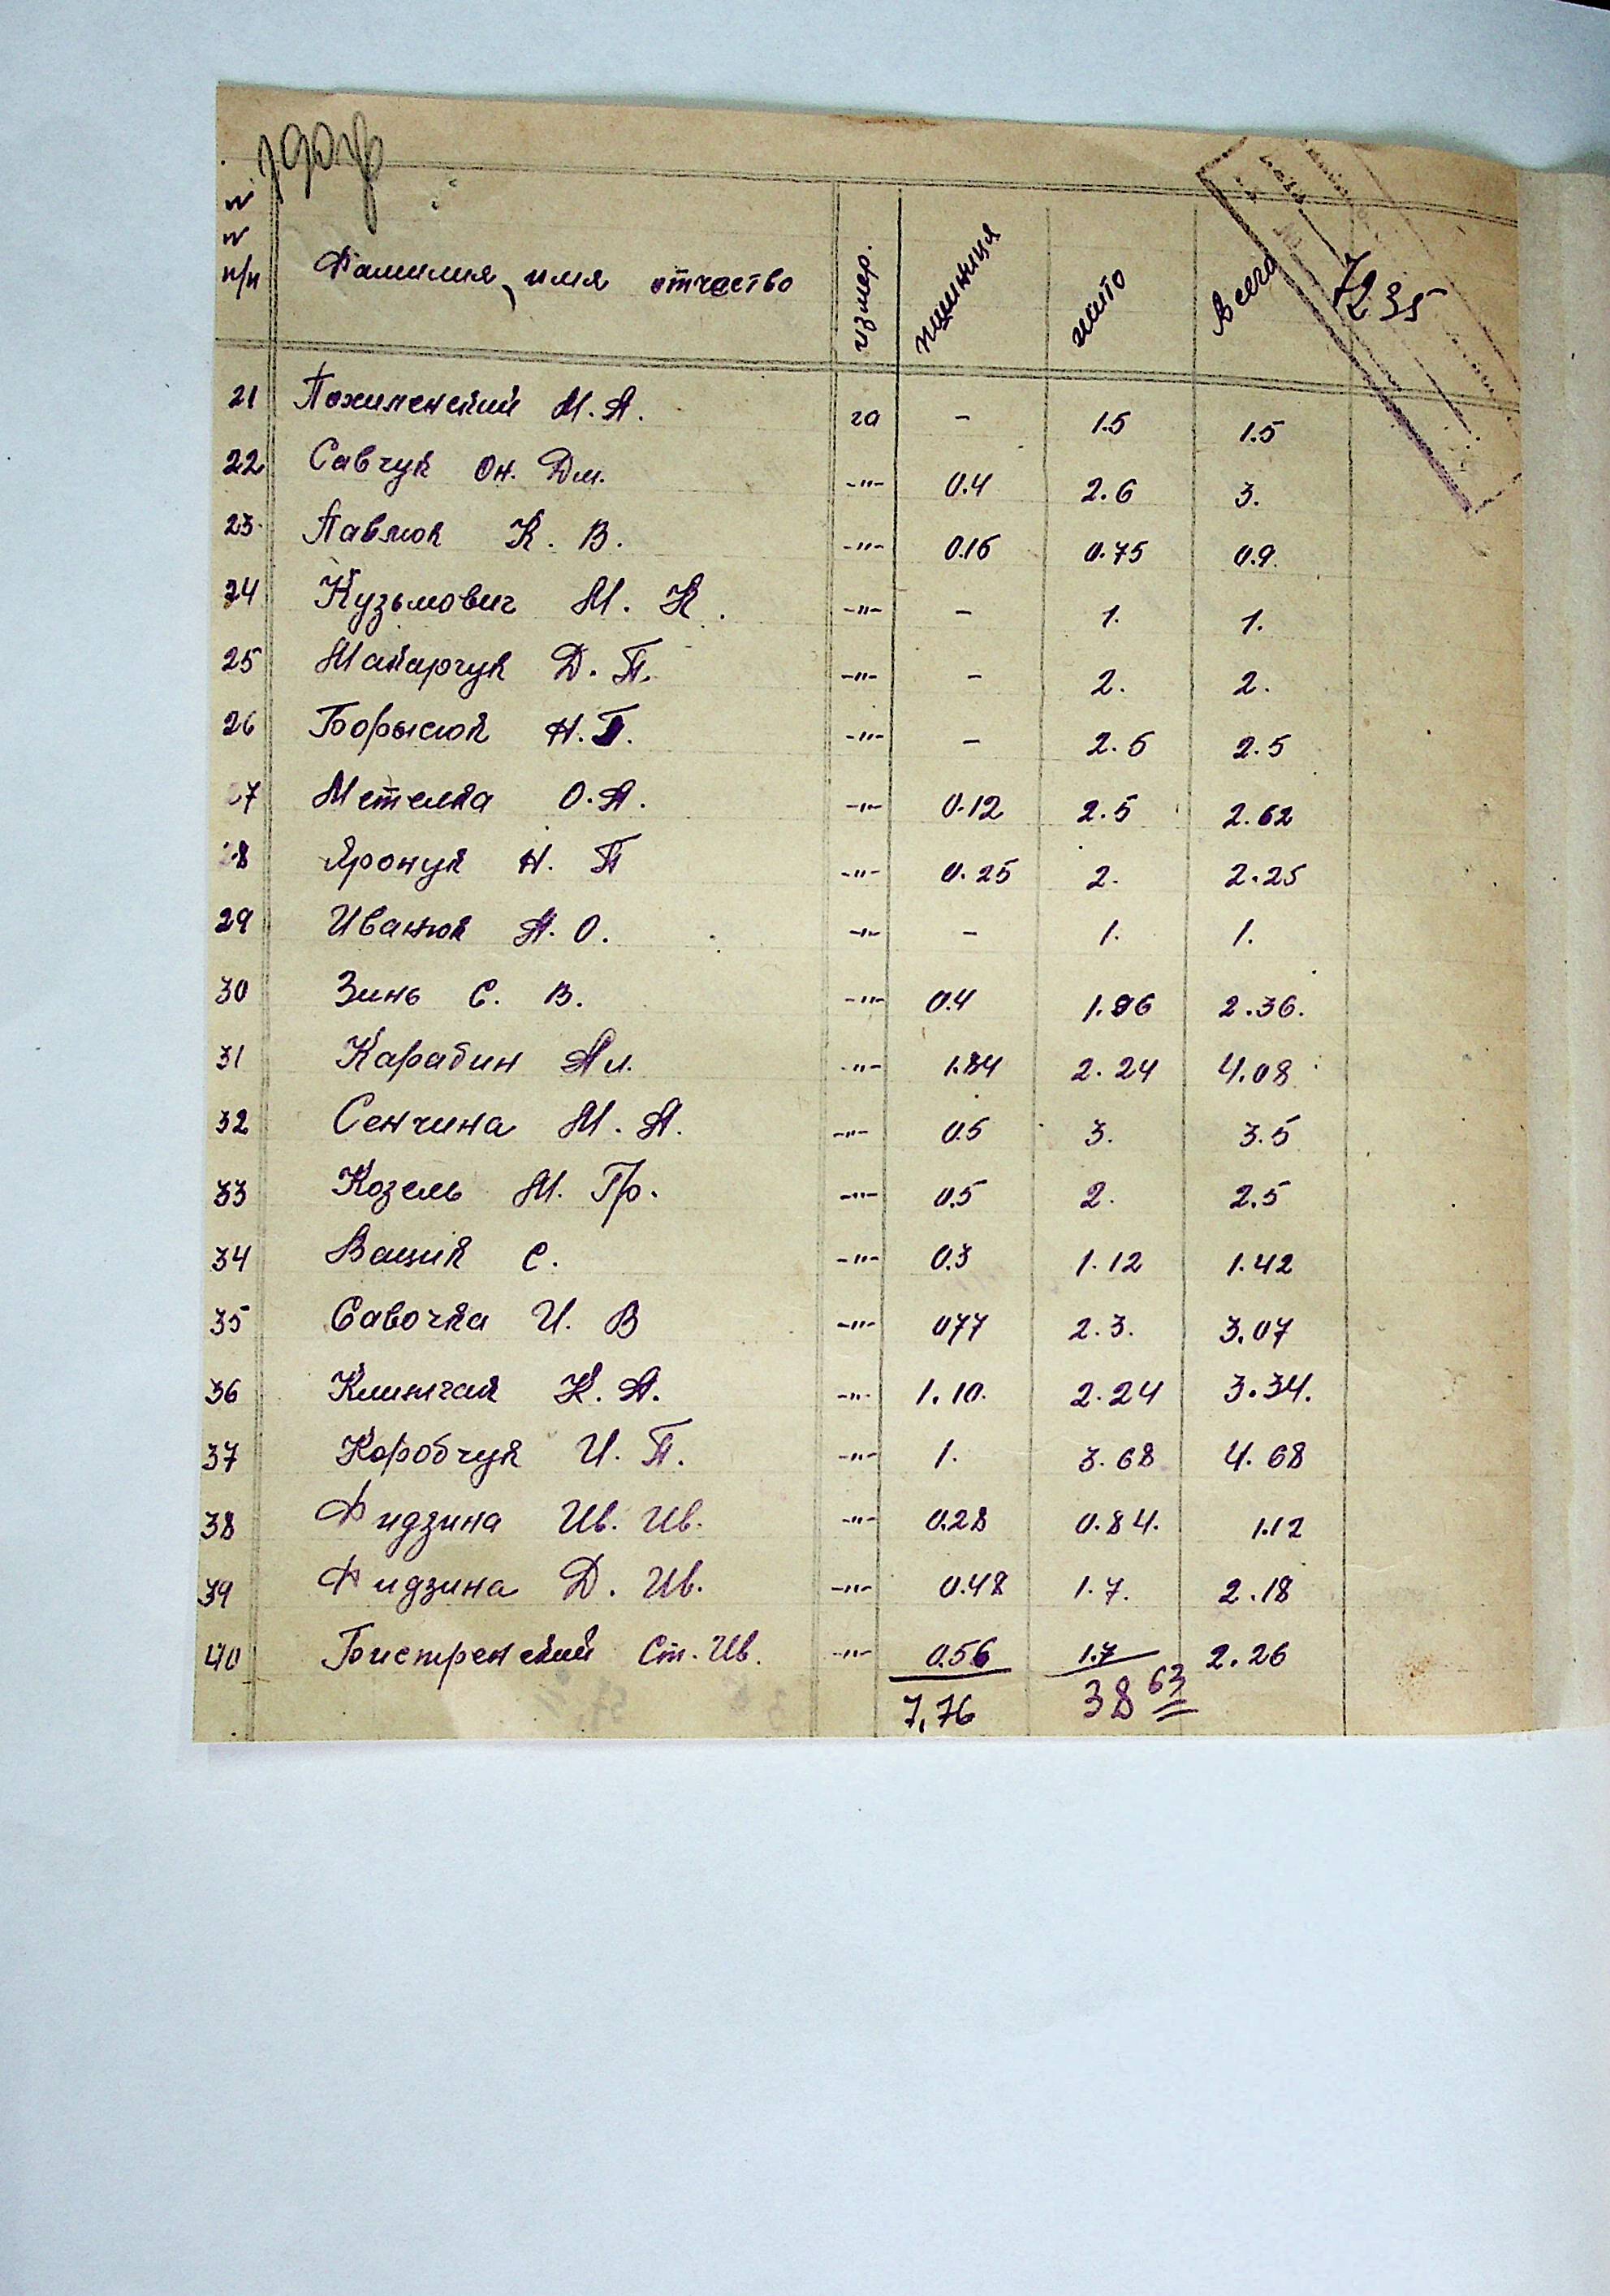 № № п/п Фамилия, имя отчество измер. пшиница жито Всего
7235
21 Пехиленский М. А. га - 1.5 1.5
22 Савчук Он. Дм. -"- 0.4 2.6 3.
23 Павлюк К. В. -"- 0.15 0.75 0.9.
24 Кузьмович М. К. -"- - 1. 1.
25 Макарчук Д. П. -"- - 2. 2.
26 Борысюк Н. П. -"- - 2.5 2.5
27 Метелка О. А. -"- 0.12 2.5 2.62
28 Яронук Н. П -"- 0.25 2. 2.25
29 Иванюк А. О. -"- - 1. 1.
30 Зинь С. В. -"- 0.4 1.96 2.36.
31 Карабин Ал. -"- 1.84 2.24 4.08
32 Сенчина М. А. -"- 0.5 3. 3.5
33 Козель М. Гр. -"- 0.5 2. 2.5
34 Вацик С. -"- 0.3 1.12 1.42
35 Савочка И. В -"- 077 2.3. 3.07
36 Климчак К. А. -"- 1.10. 2.24 3.34.
37 Коробчук И. П. -"- 1. 3.68 4.68
38 Фидзина Ив. Ив. -"- 0.28 0.84. 1.12
39 Фидзина Д. Ив. -"- 0.48 1.7. 2.18
40 Бистренский Ст. Ив. -"- 0.56 1.7 2.26
7,76 38 63